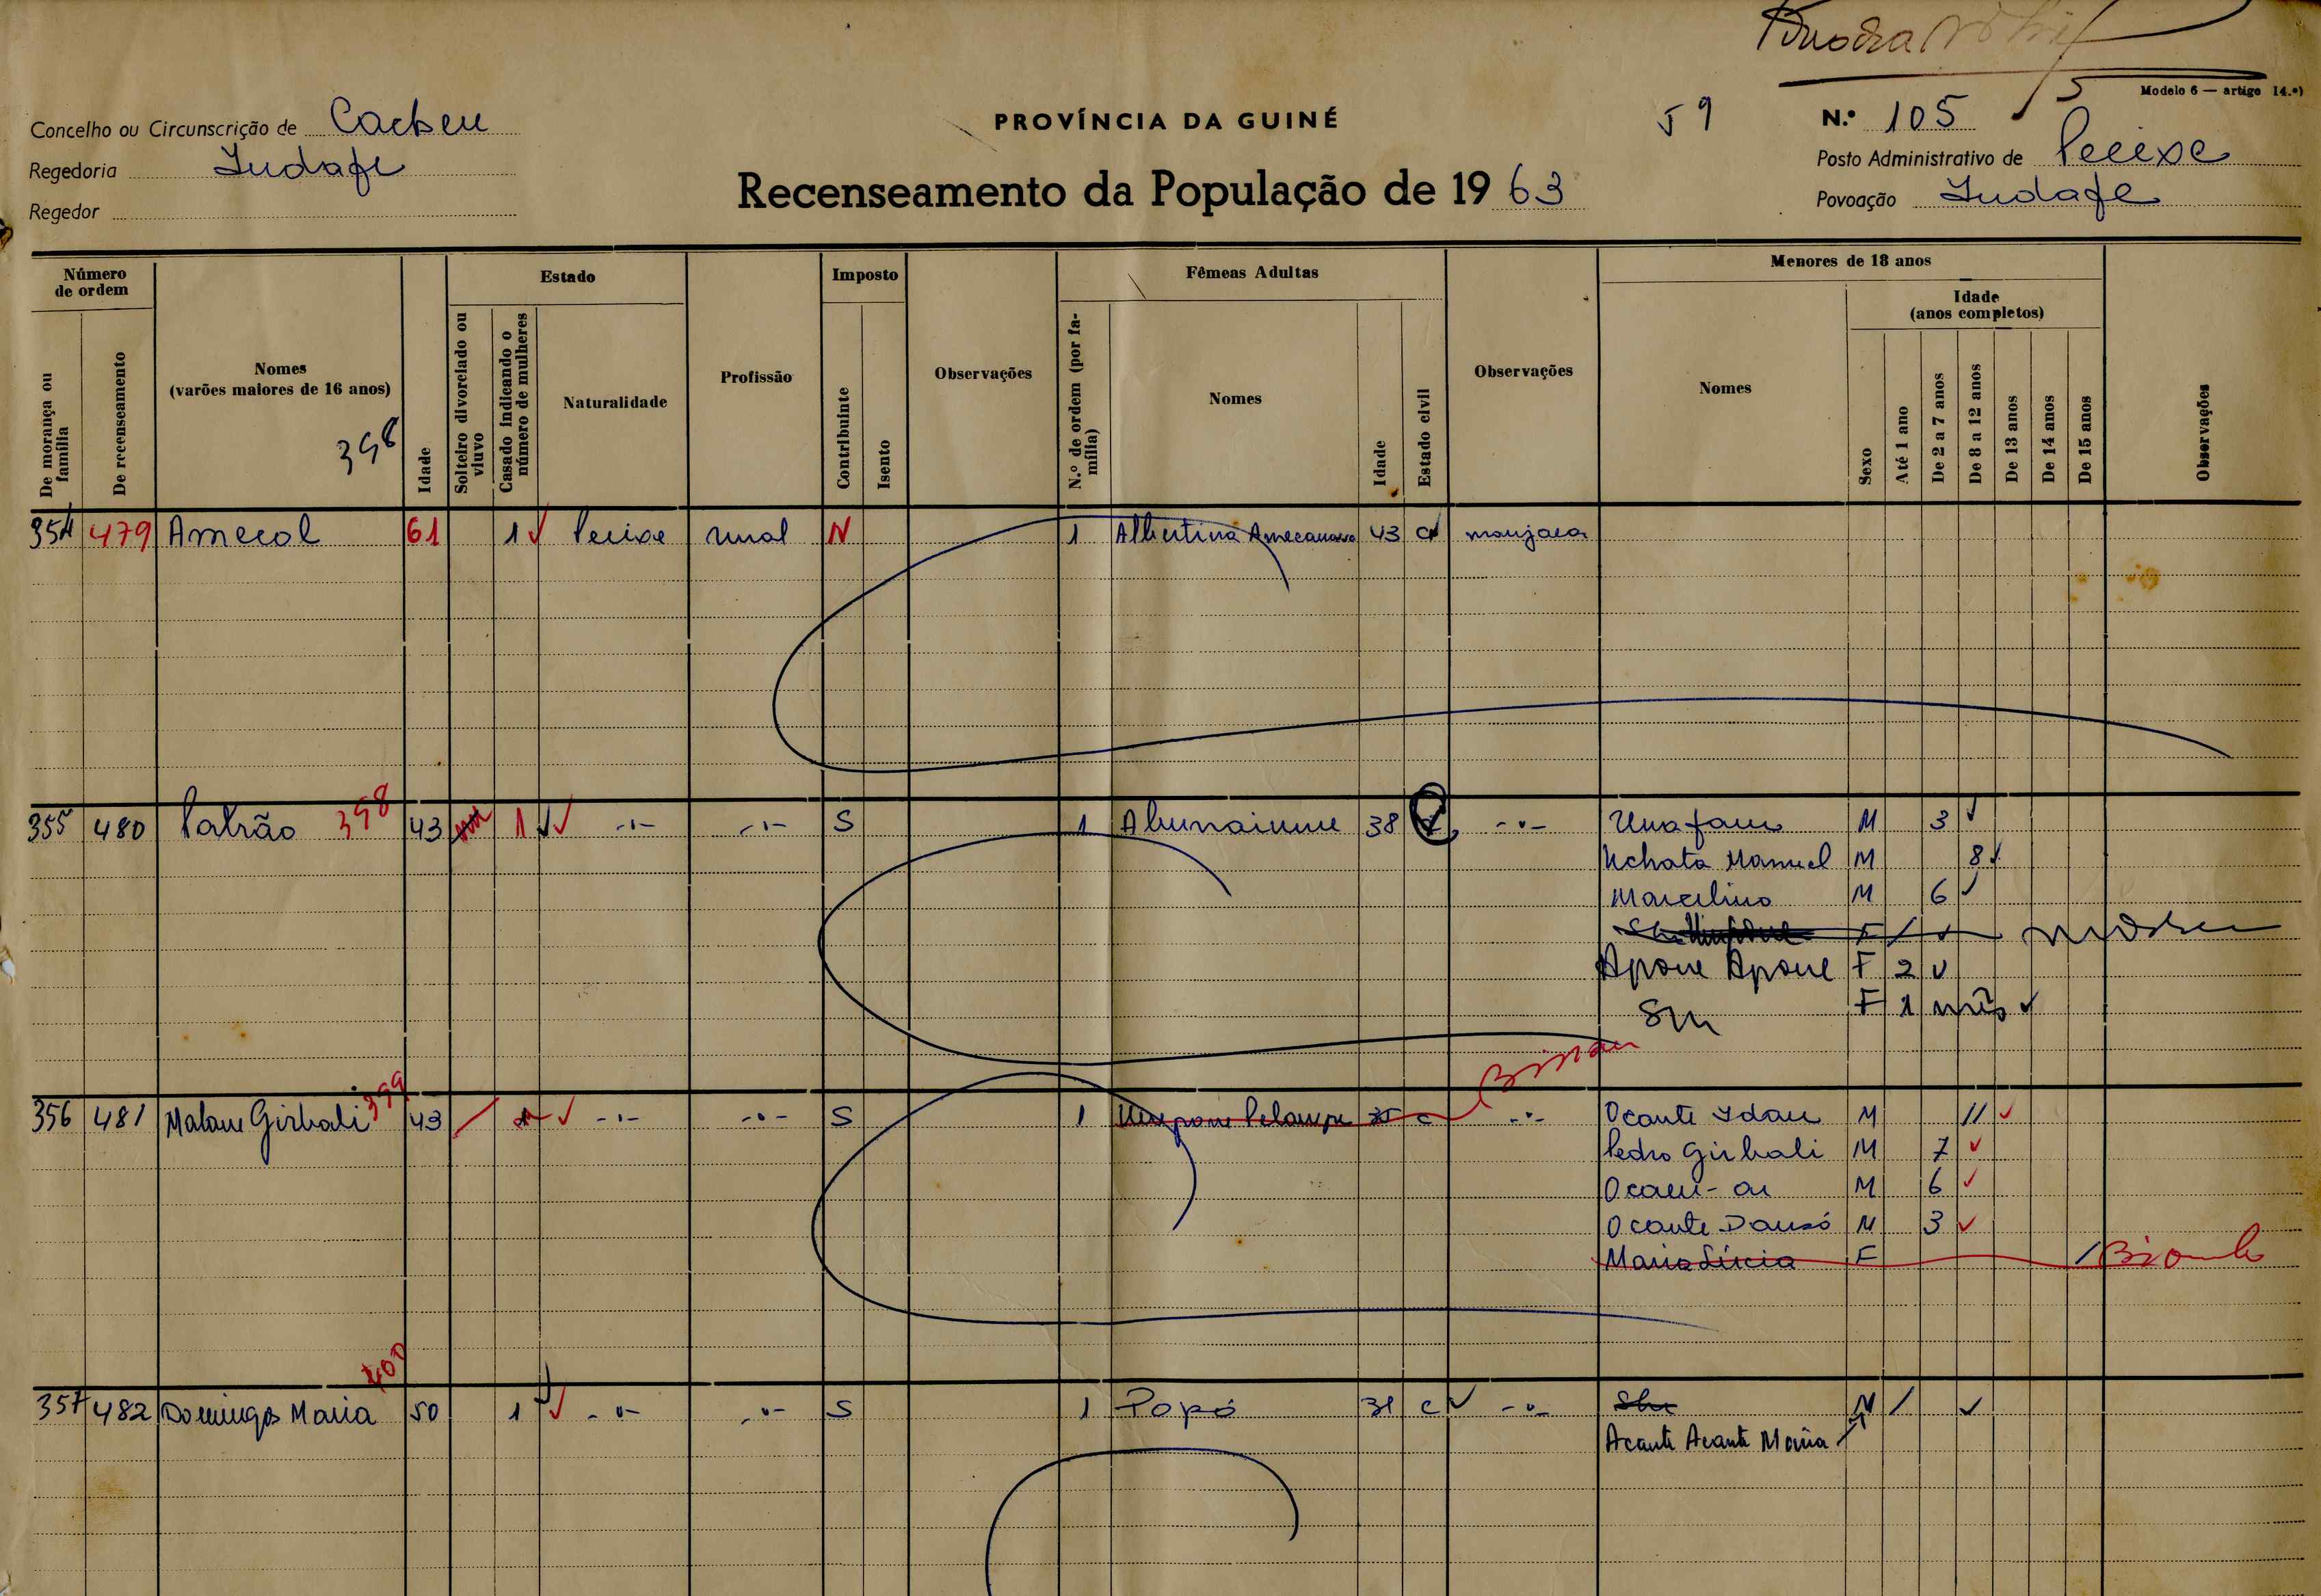 Modelo 6 — artigo 14.º)
Concelho ou Circunscrição de Cacheu
PROVÍNCIA DA GUINÉ
59
N.º 105
Regedoria Indafe
Recenseamento da População de 1963
Posto Administrativo de Pecixe
Regedor
Povoação Indafe
Número de ordem
De morança ou família
De recenseamento
Nomes
(varões maiores de 16 anos)
398
Idade
Estado
Solteiro divorciado ou viuvo
Casado indicando o número de mulheres
Naturalidade
Profissão
Imposto
Contribuinte
Isento
Observações
Fêmeas Adultas
N.º de ordem (por família)
Nomes
Idade
Estado civil
Observações
Menores de 18 anos
Nomes
Idade
(anos completos)
Sexo
Até 1 ano
De 2 a 7 anos
De 8 a 12 anos
De 13 anos
De 14 anos
De 15 anos
Observações
354 479 Amecol 61 1 Pecixe rural N 1 Albertina 43 c manjaca
355 480 Patrão 398 43 1 -"- -"- S 1 38 -"- M 3
Uchata Manuel M 8
Marcelino M 6
F
Apone Apone F 2
S/n F 1 mês
Bissau
356 481 Malam Girbali 399 43 -"- -"- S 1 c -"- Ocante Idau M 11
Pedro Girbali M 7
M 6
Ocante Dansó M 3
Maria Lúcia F Biombo
357 482 Domingos Maria 400 50 1 -"- -"- S 1 Popó 31 c -"- S/n M
Acante Acante Maria